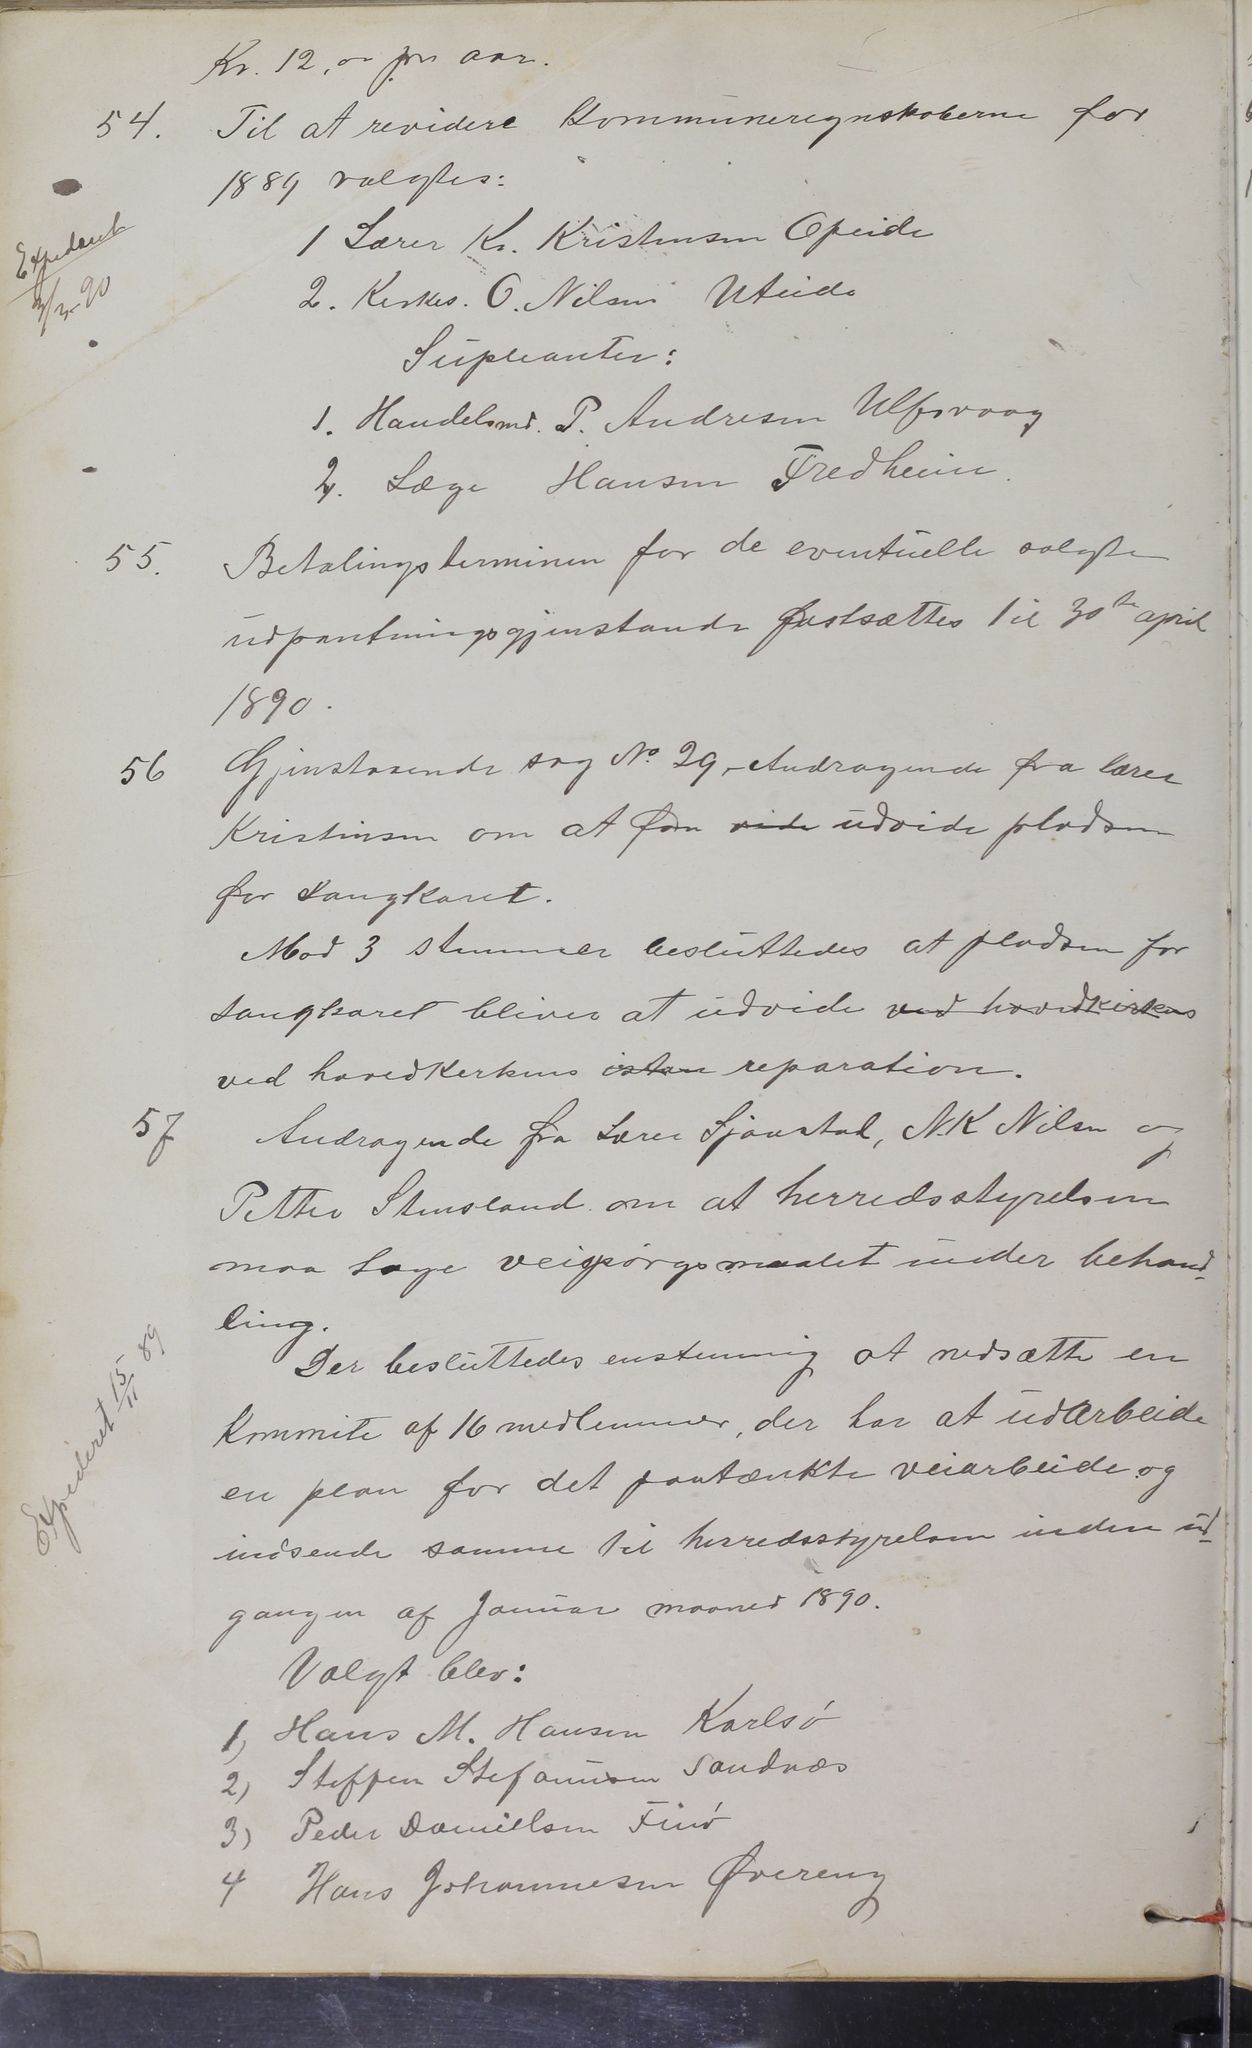 Kr. 12,00 pr aar.
54. Til at revidere kommuneregnskaberne for
1889 valgtes:
Expederet
3/3-90
1 Lærer Kr. Kristensen Opeide
2. Kirkes. O. Nilsen Uteide
Supleanter:
1. Handelsmd. P. Andresen Ulfsvaag
2. Læge Hansen Fredheim.
55. Betalingsterminen for de eventuelle solgte
udpantningsgjenstande fastsættes til 30te april
1890.
56 Gjenstaaende sag No. 29, Andragende fra lærer
Kristensen om at faa vide udvide pladsen
for sangkoret.
Mod 3 stemmer besluttedes at pladsen for
sangkoret bliver at udvide ved hovedkirkens
ved hovedkerkens reparation.
57 Andragende fra Lærer Sjaastad, N.K Nilsen og
Petter Stensland om at herredsstyrelsen
maa tage veispørgsmaalet under behand-
ling.
Expederet 15/11 89
Der besluttedes enstemmig at nedsætte en
kommite af 16 medlemmer, der har at udarbeide
en plan for det paatænkte veiarbeide og
indsende samme til herredsstyrelsen inden ud-
gangen af Januar maaned 1890.
Valgt blev:
1, Hans M. Hansen Karlsö
2, Steffen Stefanusen Sandnæs
3, Peder Danielsen Finö
4 Hans Johannesen Øvereng